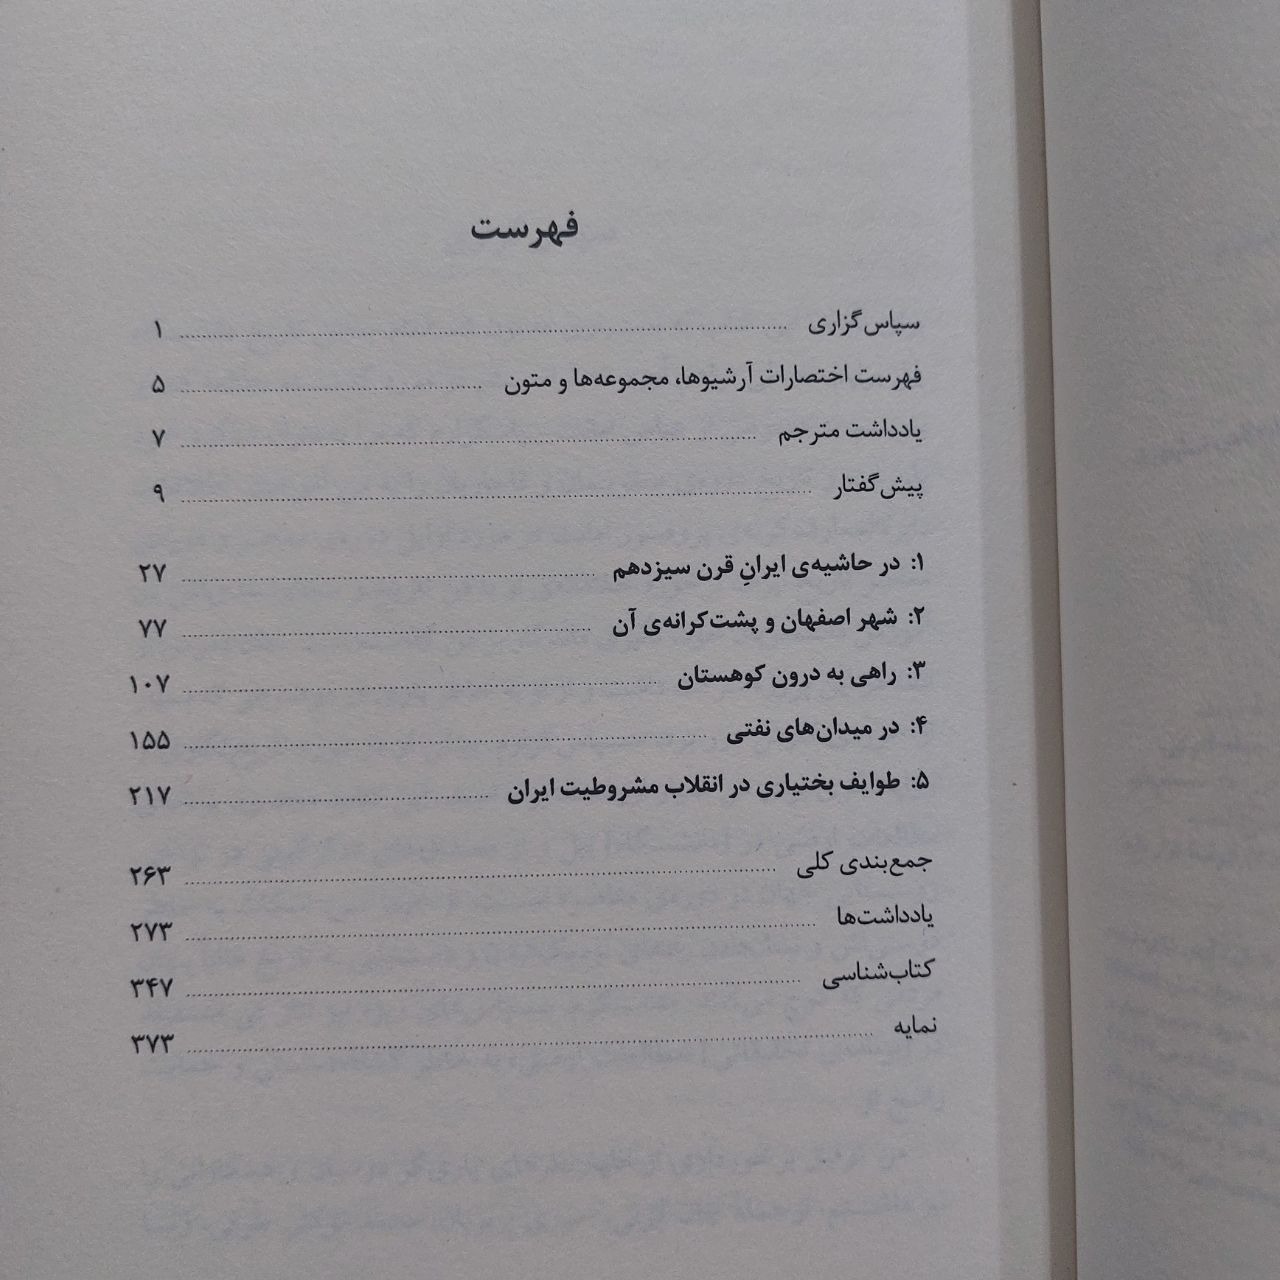 فهرست
سپاس‌گزاری ........ ۱
فهرست اختصارات آرشیوها، مجموعه‌ها و متون ........ ۵
یادداشت مترجم ........ ۷
پیش‌گفتار ........ ۹
۱: در حاشیه‌ی ایرانِ قرن سیزدهم ........ ۲۷
۲: شهر اصفهان و پشت‌کرانه‌ی آن ........ ۷۷
۳: راهی به درون کوهستان ........ ۱۰۷
۴: در میدان‌های نفتی ........ ۱۵۵
۵: طوایف بختیاری در انقلاب مشروطیت ایران ........ ۲۱۷
جمع‌بندی کلی ........ ۲۶۳
یادداشت‌ها ........ ۲۷۳
کتاب‌شناسی ........ ۳۴۷
نمایه ........ ۳۷۳